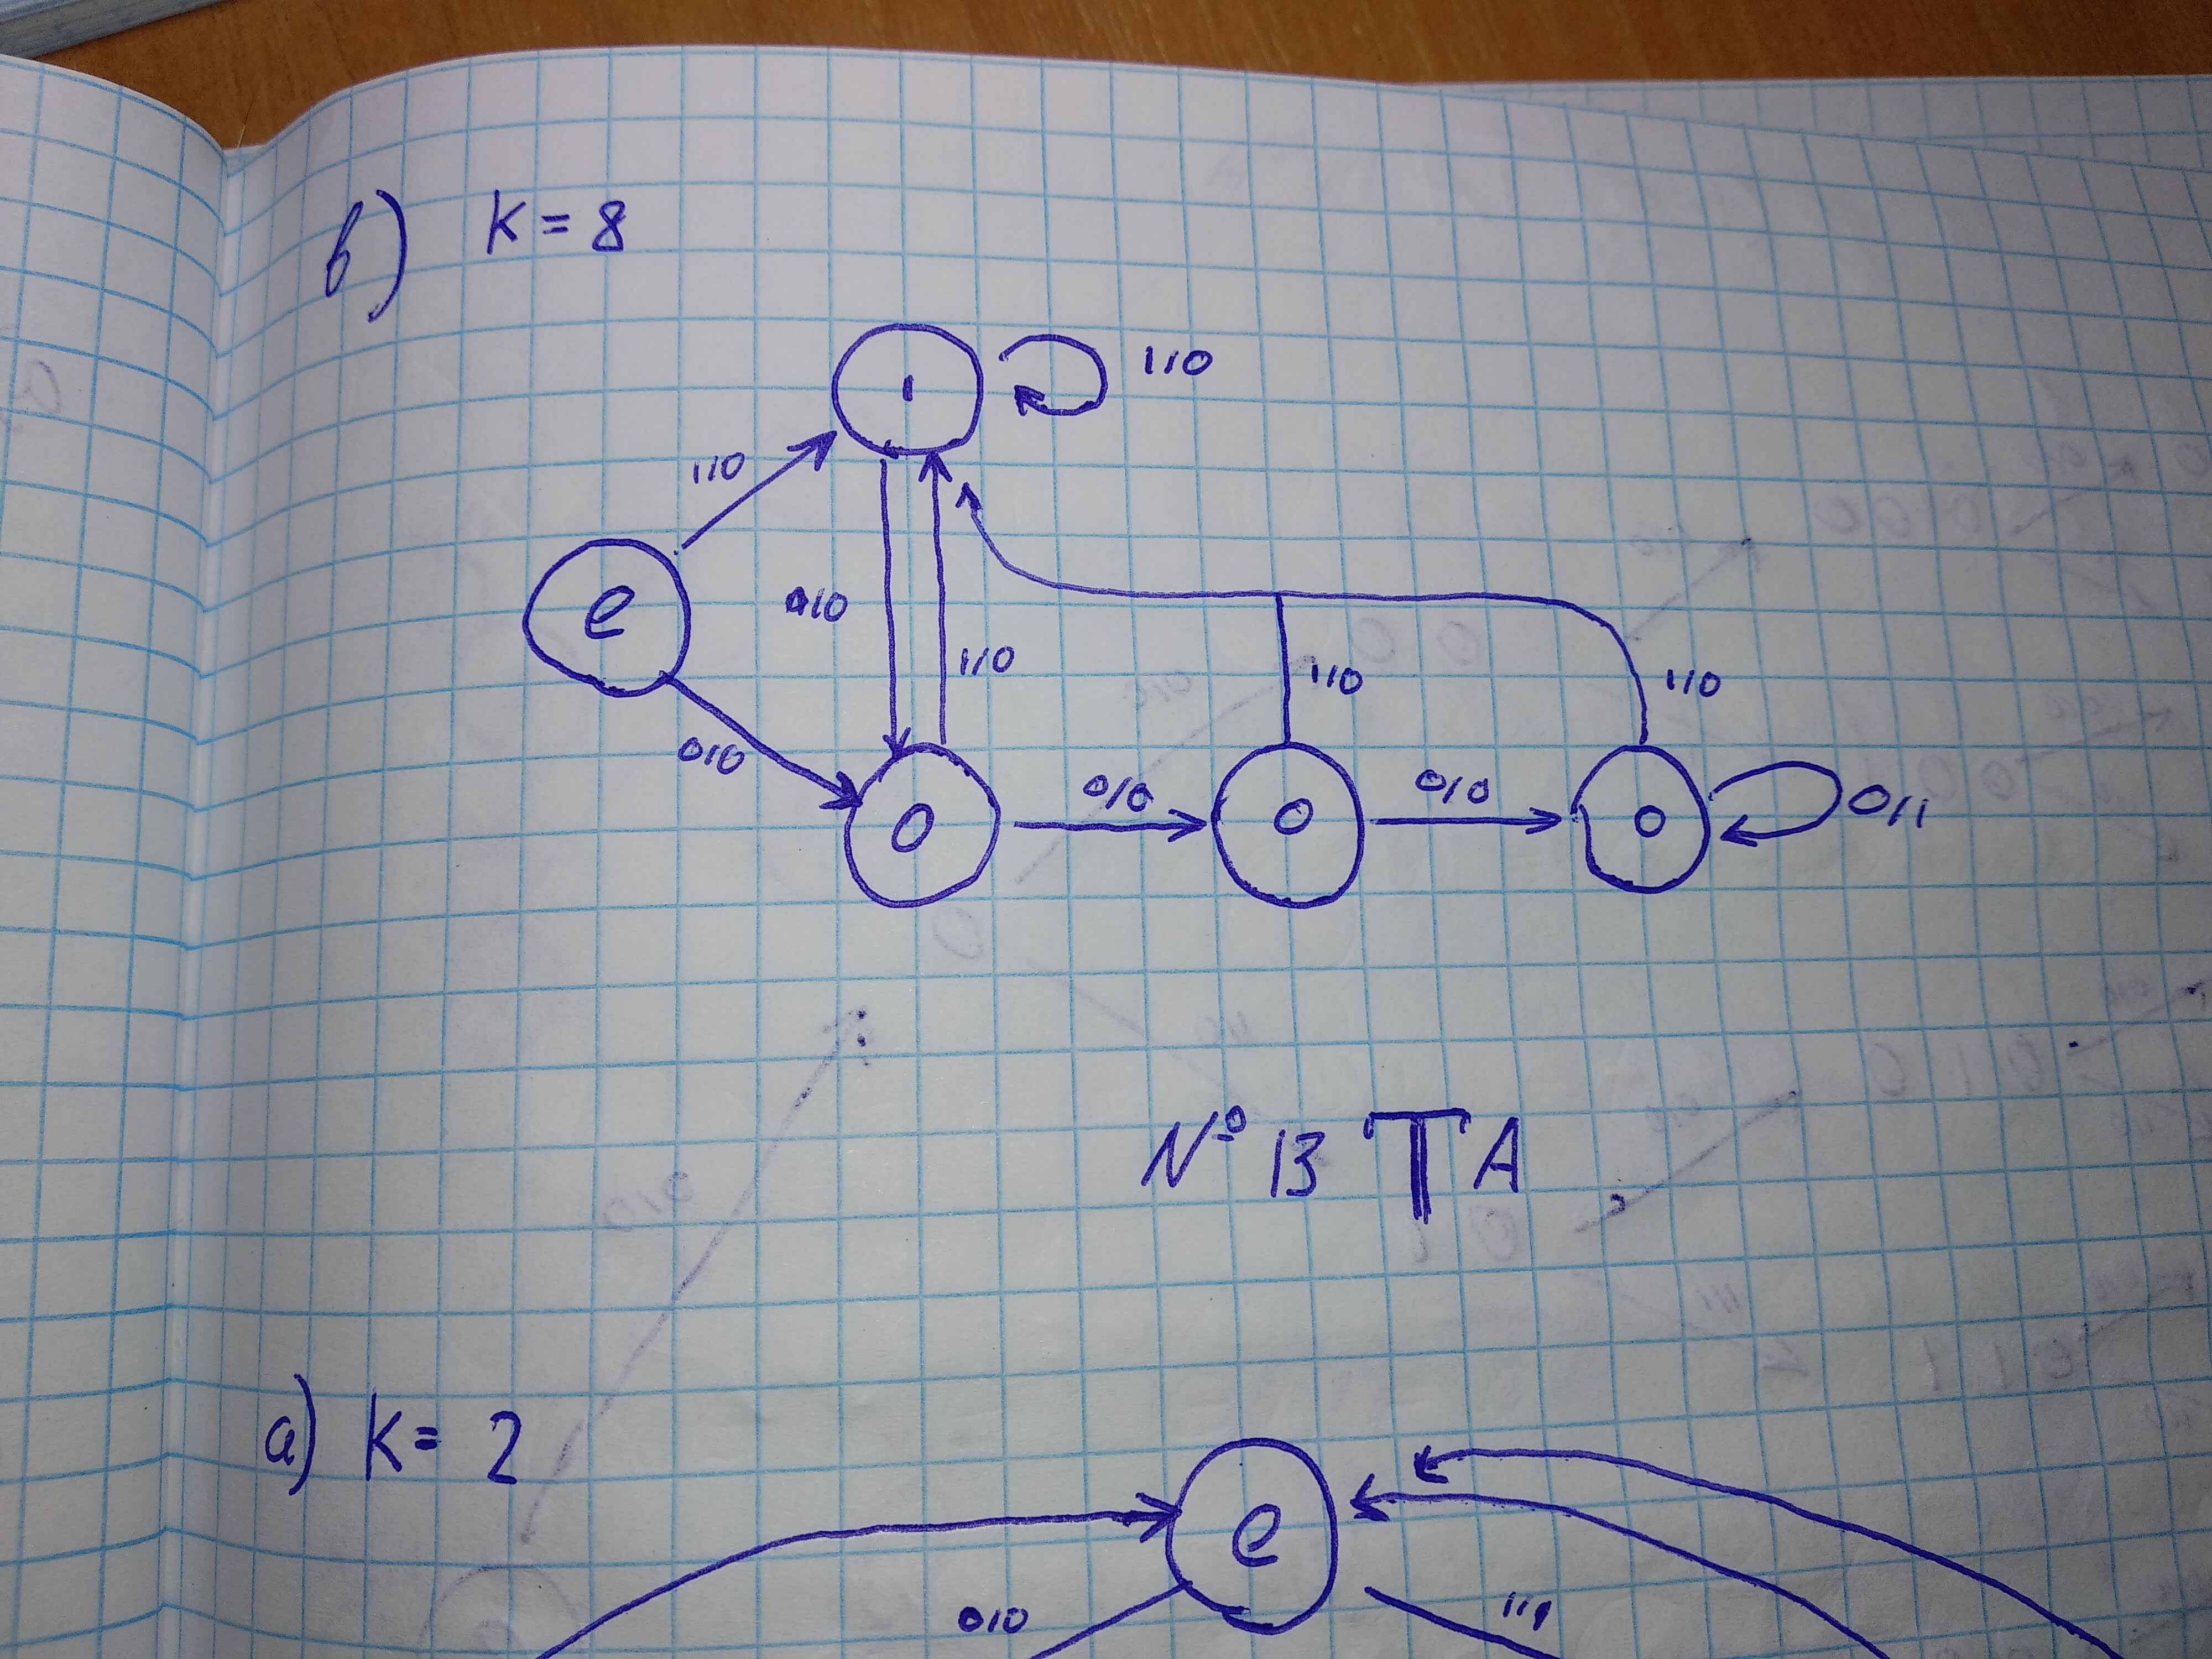 в) K = 8
1 1/0
1/0
e 0/0
1/0 1/0 1/0
0/0 0/0 0/0 0/1
0 0 0
№ 13 TA
а) K = 2
e
0/0 1/1